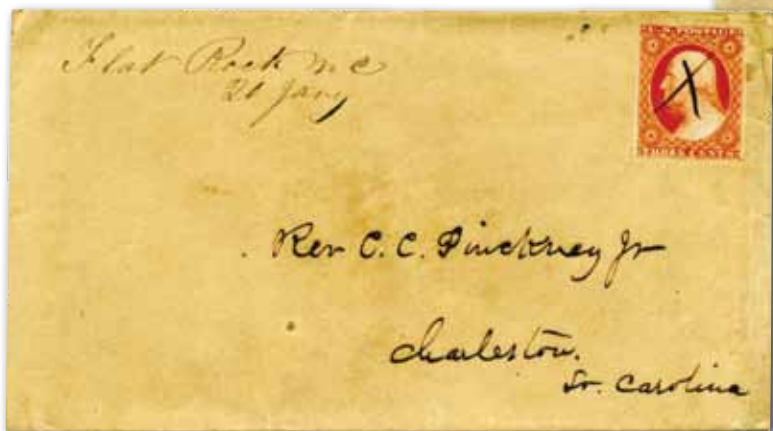 Flat Rock N C
21 Jany
U.S. POSTAGE
X
THREE CENTS
Rev C. C. Pinckney Jr
Charleston.
So. Carolina